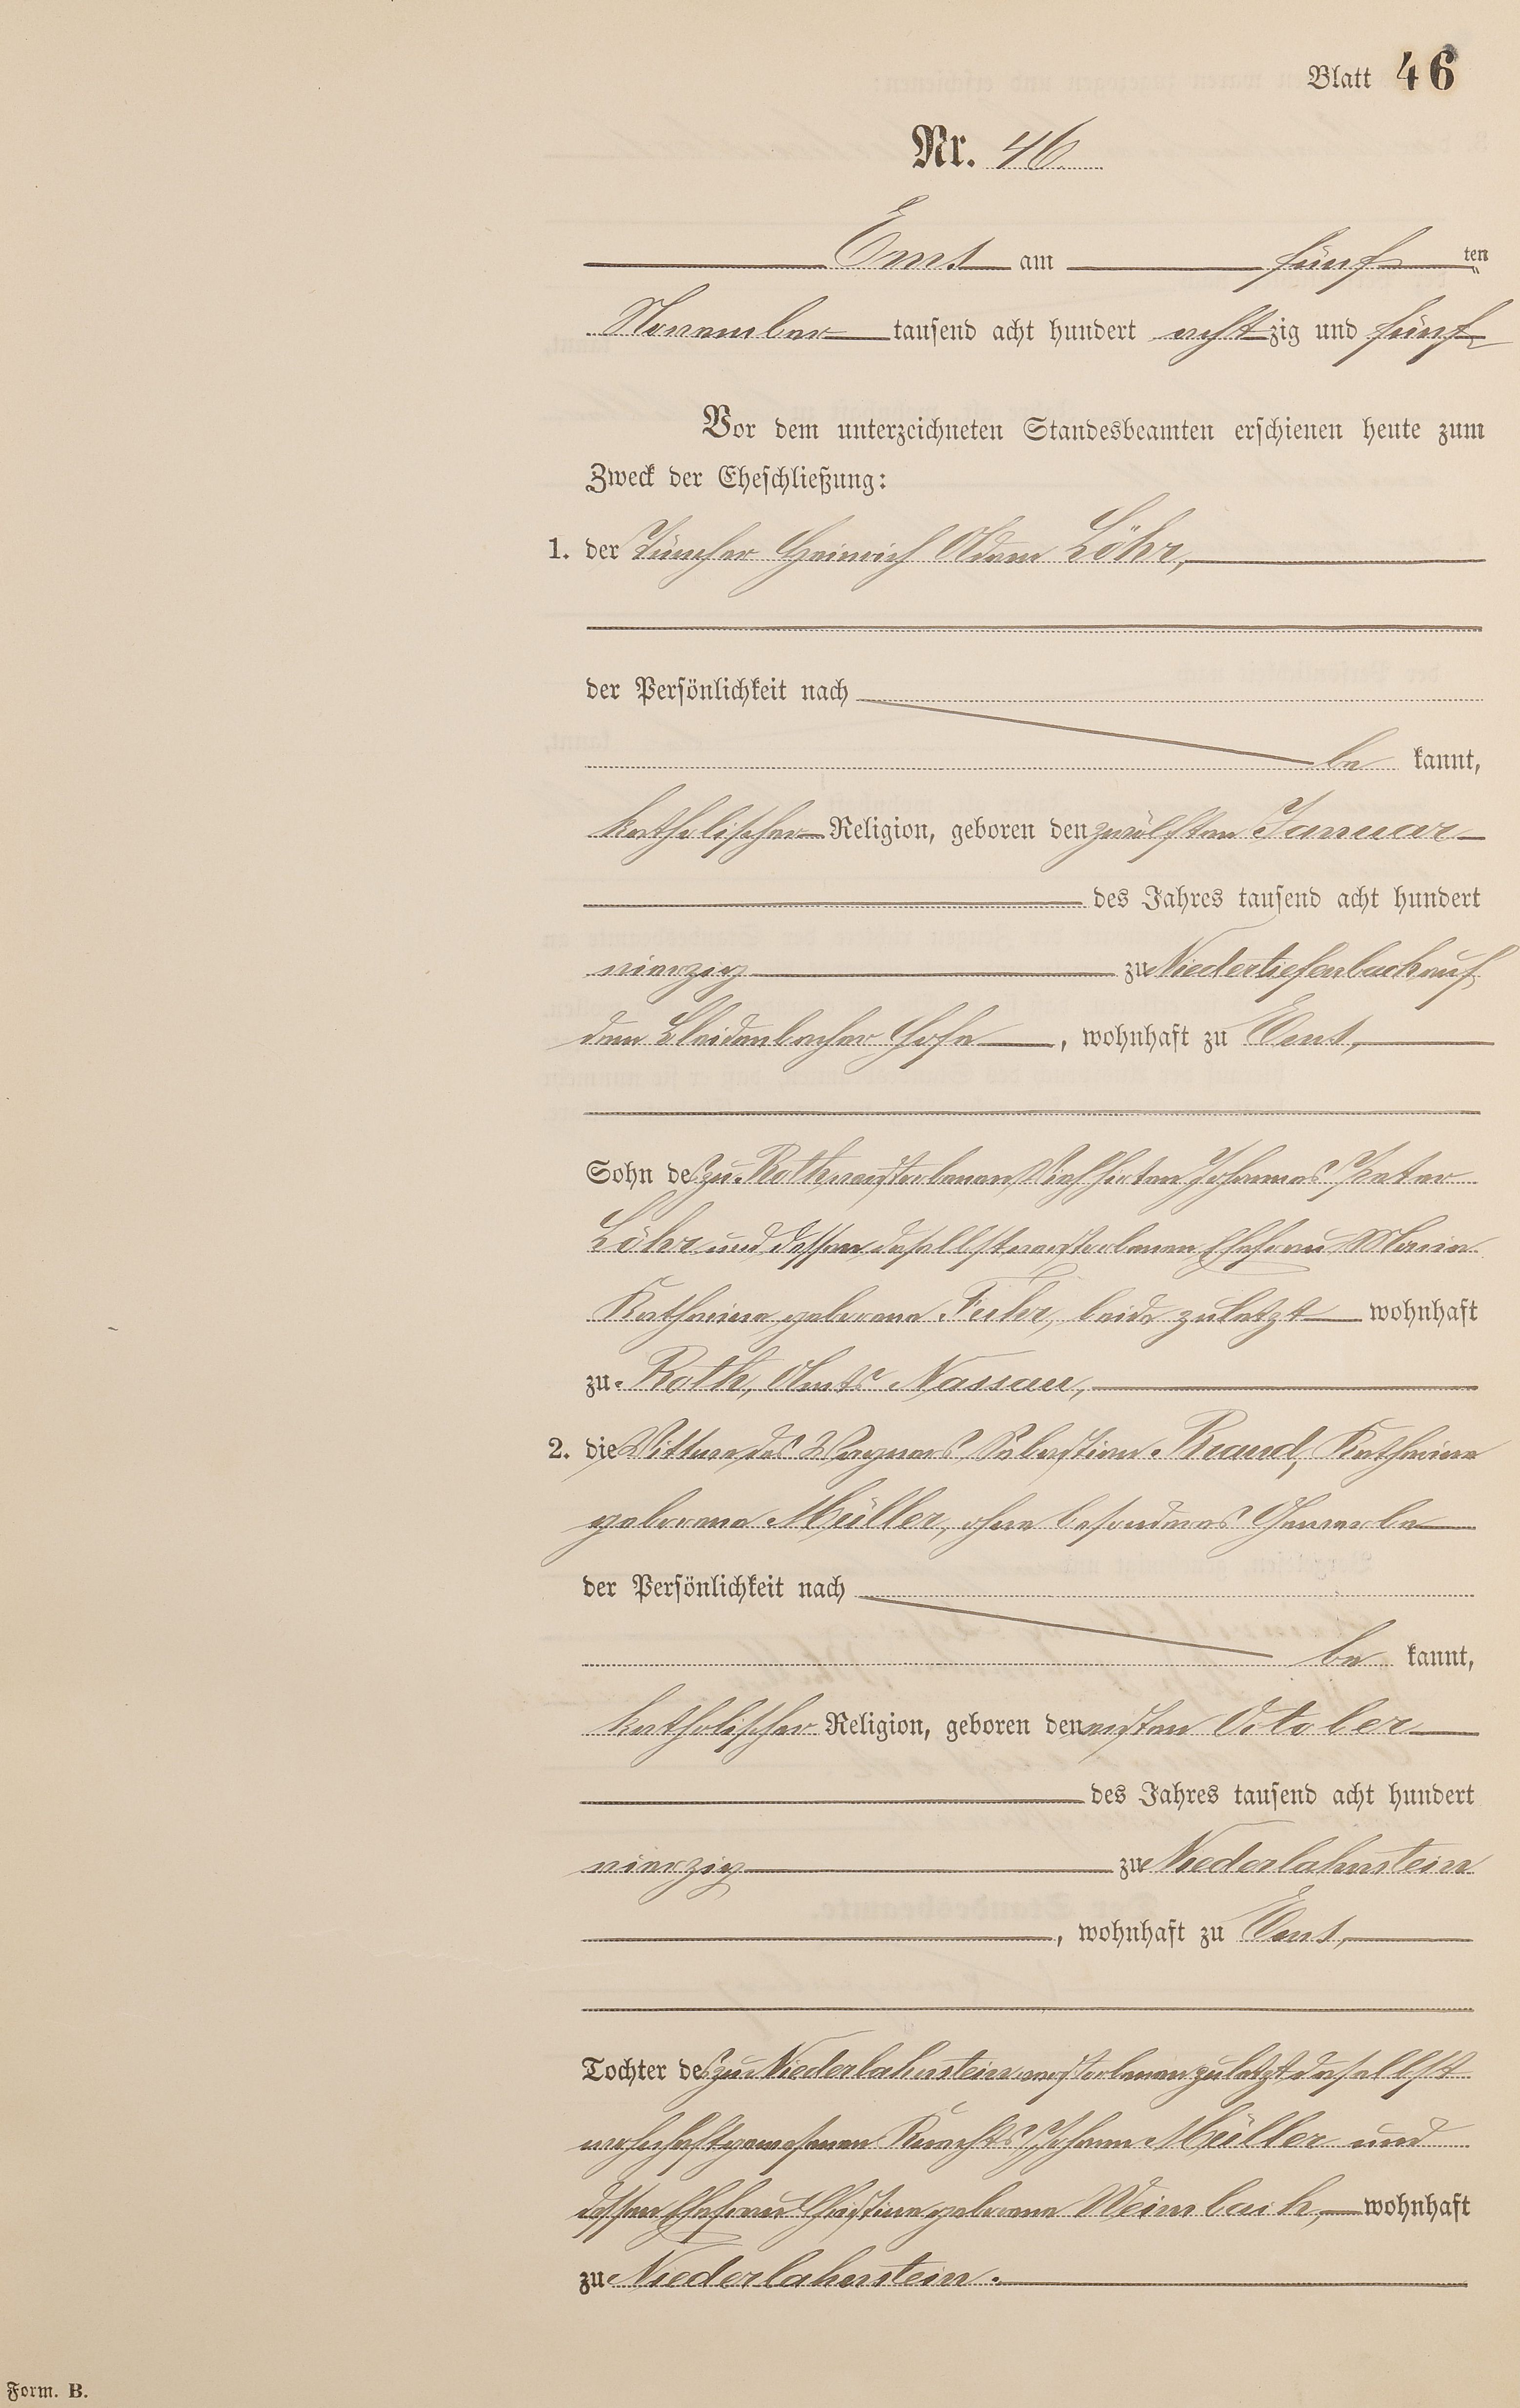 Blatt 46
Nr. 46
Ems am fünf ten
November tausend acht hundert achtzig und fünf
Vor dem unterzeichneten Standesbeamten erschienen heute zum
Zweck der Eheschließung:
1. der Tüncher Heinrich Adam Löhr,
der Persönlichkeit nach
be kannt,
katholischer Religion, geboren den zwölften Januar
des Jahres tausend acht hundert
vierzig zu Niedertiefenbach auf
dem Bleidenbacher Hofe, wohnhaft zu Ems,
Sohn des zu Roth verstorbenen Viehhirten Johannes Peter
Löhr und dessen daselbst verstorbenen Ehefrau Maria
Katharina geborene Fuhr, beide zuletzt wohnhaft
zu Roth, Amts Nassau,
2. die Wittwe des Wagners Sebastian Brand, Katharina
geborene Müller, ohne besonderes Gewerbe
der Persönlichkeit nach
be kannt,
katholischer Religion, geboren den ersten October
des Jahres tausend acht hundert
vierzig zu Niederlahnstein
, wohnhaft zu Ems,
Tochter des zu Niederlahnstein verstorbenen zuletzt daselbst
wohnhaft gewesenen Knechts Johann Müller und
dessen Ehefrau Christine geborene Weimbach, wohnhaft
zu Niederlahnstein.
Form. B.